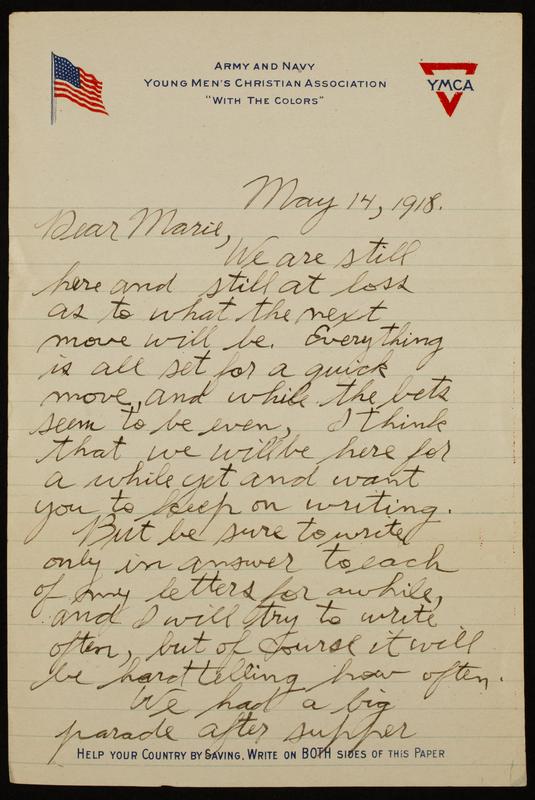 ARMY AND NAVY
YOUNG MEN'S CHRISTIAN ASSOCIATION
"WITH THE COLORS"
YMCA
May 14, 1918.
Dear Marie,
We are still
here and still at loss
as to what the next
move will be. Everything
is all set for a quick
move, and while the bets
seem to be even, I think
that we will be here for
a while yet and want
you to keep on writing.
But be sure to write
only in answer to each
of my letters for awhile,
and I will try to write
often, but of course it will
be hard telling how often.
We had a big
parade after supper
HELP YOUR COUNTRY BY SAVING. WRITE ON BOTH SIDES OF THIS PAPER